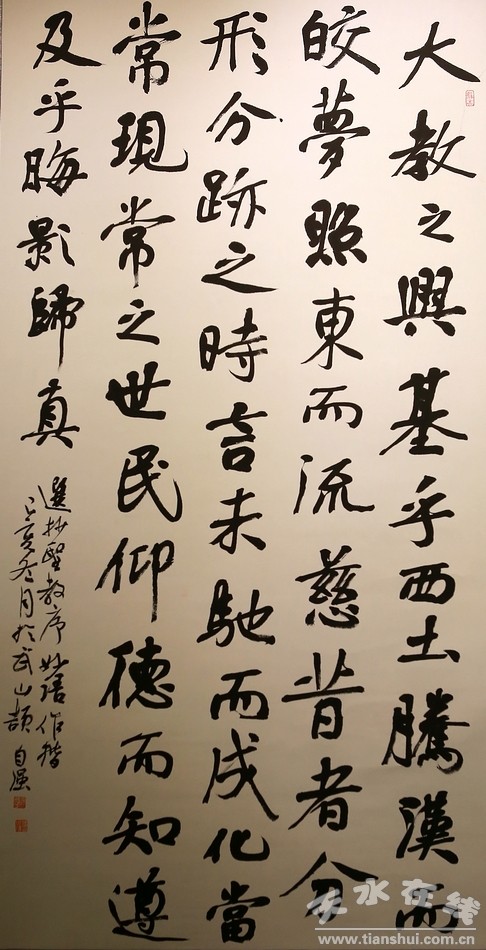 大教之興基乎西土騰漢而
皎夢照東而流慈昔者分
形分跡之時言未馳而成化當
常現常之世民仰德而知遵
及乎晦影歸真
選抄聖教序妙語作
己亥冬月於武山頡自强
天水在线
www.tianshui.com.cn